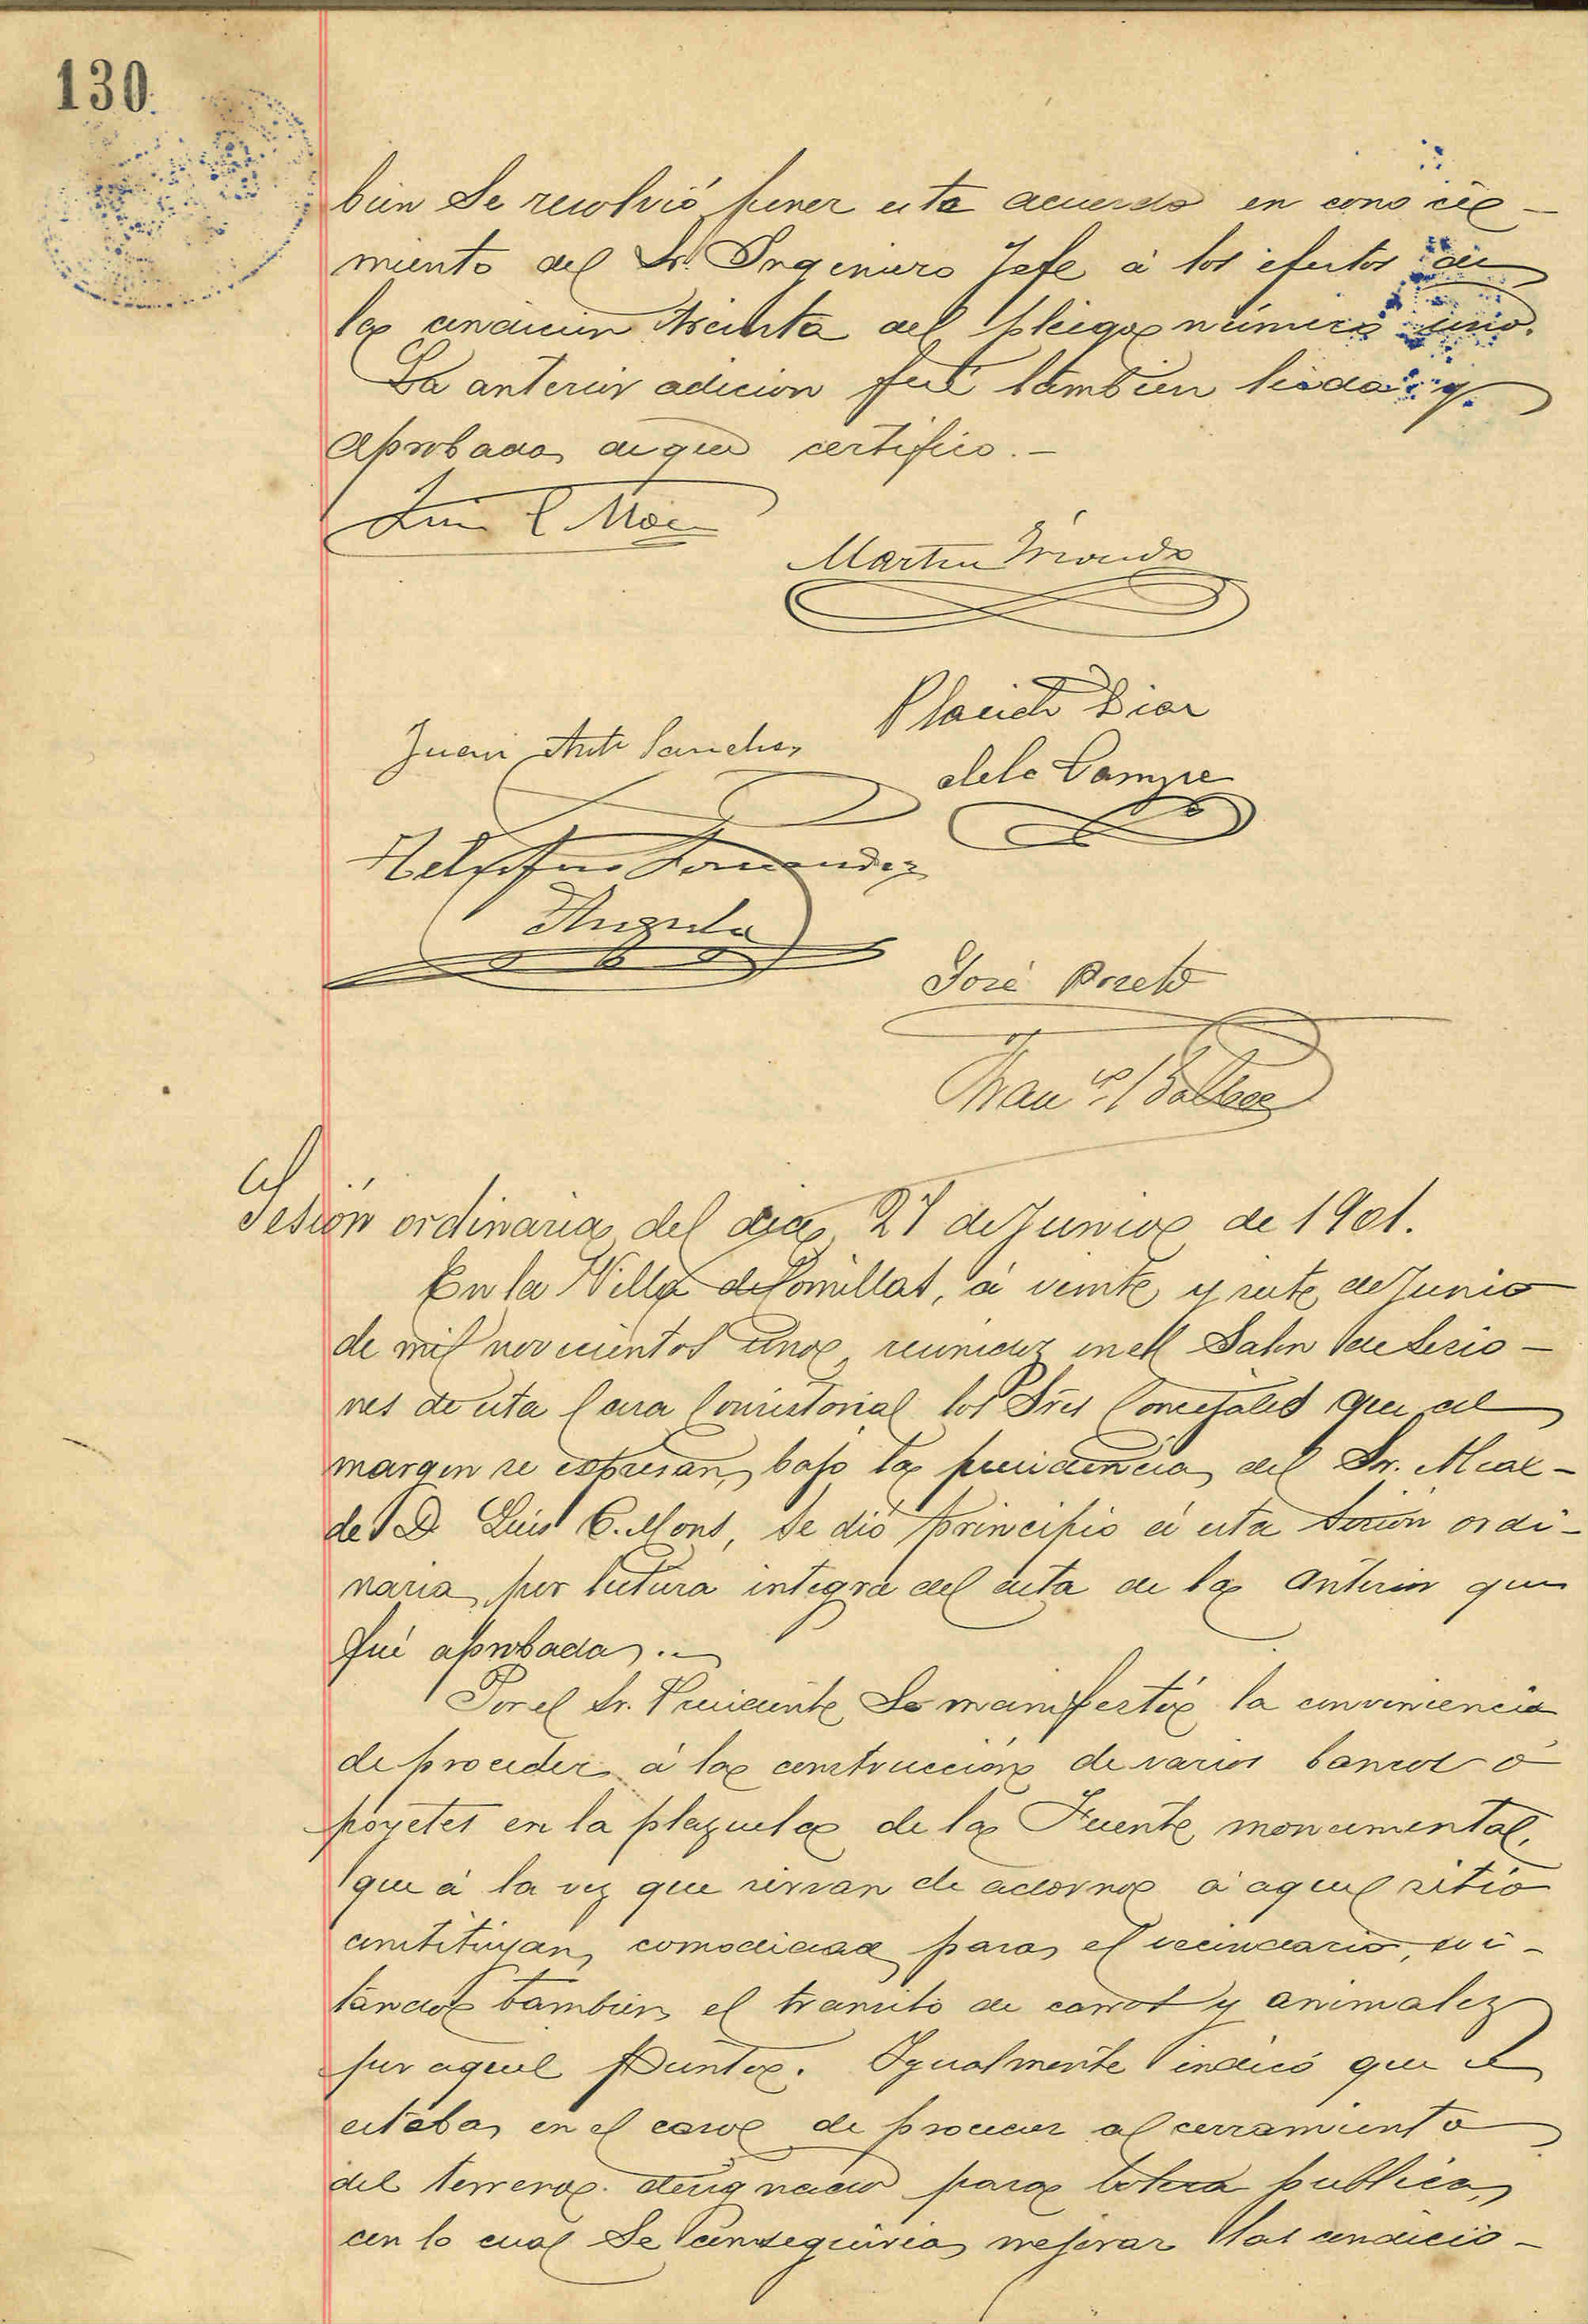 130
bien se resolvió poner este acuerdo en conoci-
miento del Sr. Ingeniero Jefe á los efectos de
la condicion treinta del pliego número uno.
La anterior adicion fué tambien leida y
aprobada de que certifico.-
Luis C Mons
Martin
Placido Diaz
Juan Ant Sanchez
de la Campa
Telesforo Fernandez
Angulo
José Poreto
Fran.co Balboa
Sesión ordinaria del dia 27 de Junio de 1901.
En la Villa de Comillas, á veinte y siete de Junio
de mil novecientos uno, reunidos en el Salon de Sesio-
nes de esta Casa Consistorial los Sres Concejales que al
margen se espresan, bajo la presidencia del Sr. Alcal-
de D. Luis C. Mons, se dió principio á esta sesión ordi-
naria por lectura integra del acta de la anterior que
fué aprobada.-
Por el Sr. Presidente se manifestó la conveniencia
de proceder á la construcción de varios bancos ó
poyetes en la plazuela de la Fuente monumental,
que á la vez que sirvan de adorno á aquel sitio
constituyan comodidad para el vecindario, evi-
tando tambien el transito de carros y animales
por aquel punto. Igualmente indicó que se
estaba en el caso de proceder al cerramiento
del terreno designado para bolera publica,
con lo cual se conseguiria mejorar las condicio-